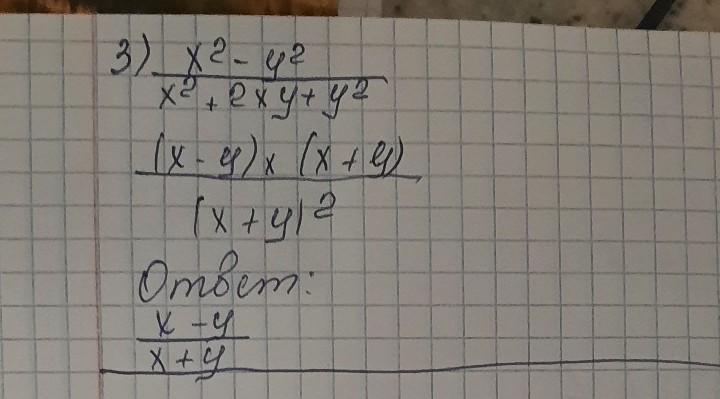 3) x² - y²
x² + 2xy + y²
(x - y) x (x + y)
(x + y)²
Ответ:
x - y
x + y